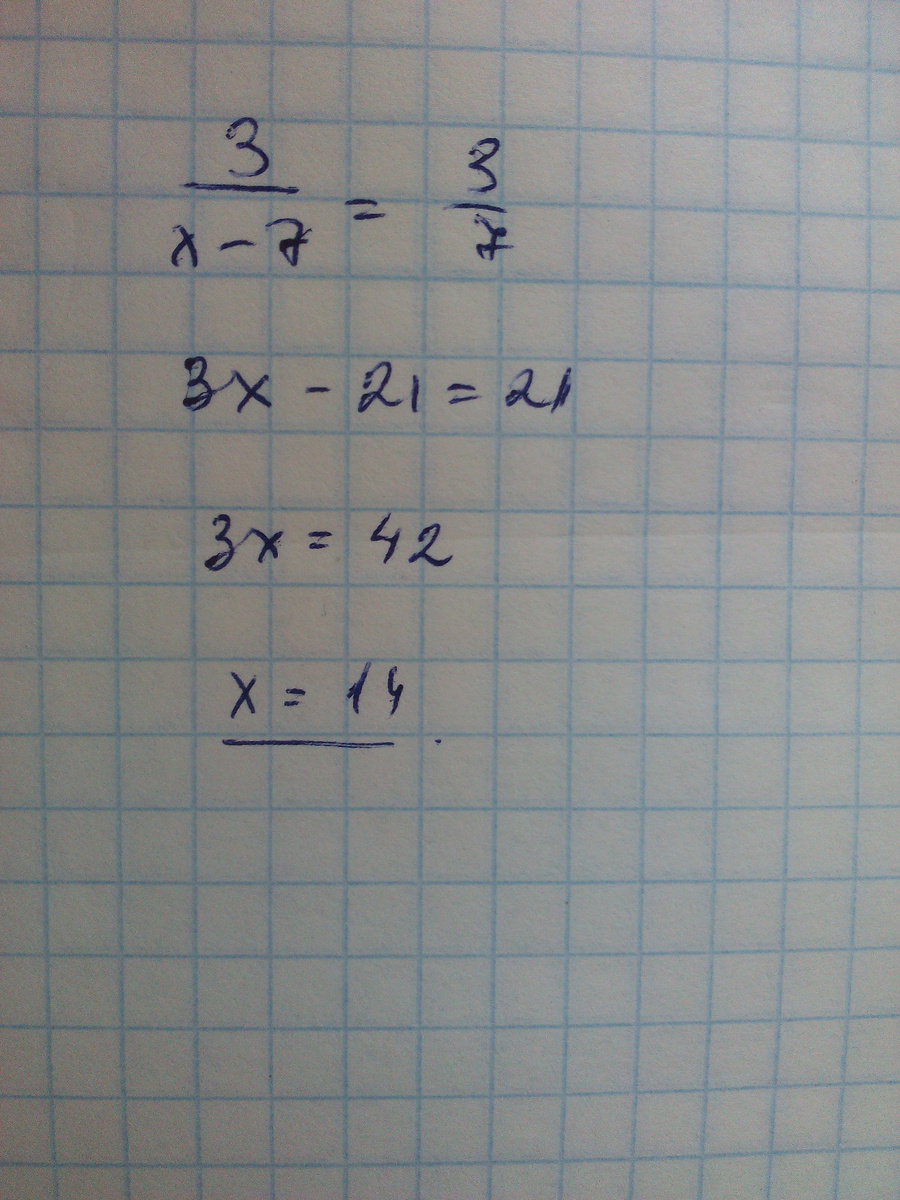 3/(x-7) = 3/7
3x - 21 = 21
3x = 42
x = 14.